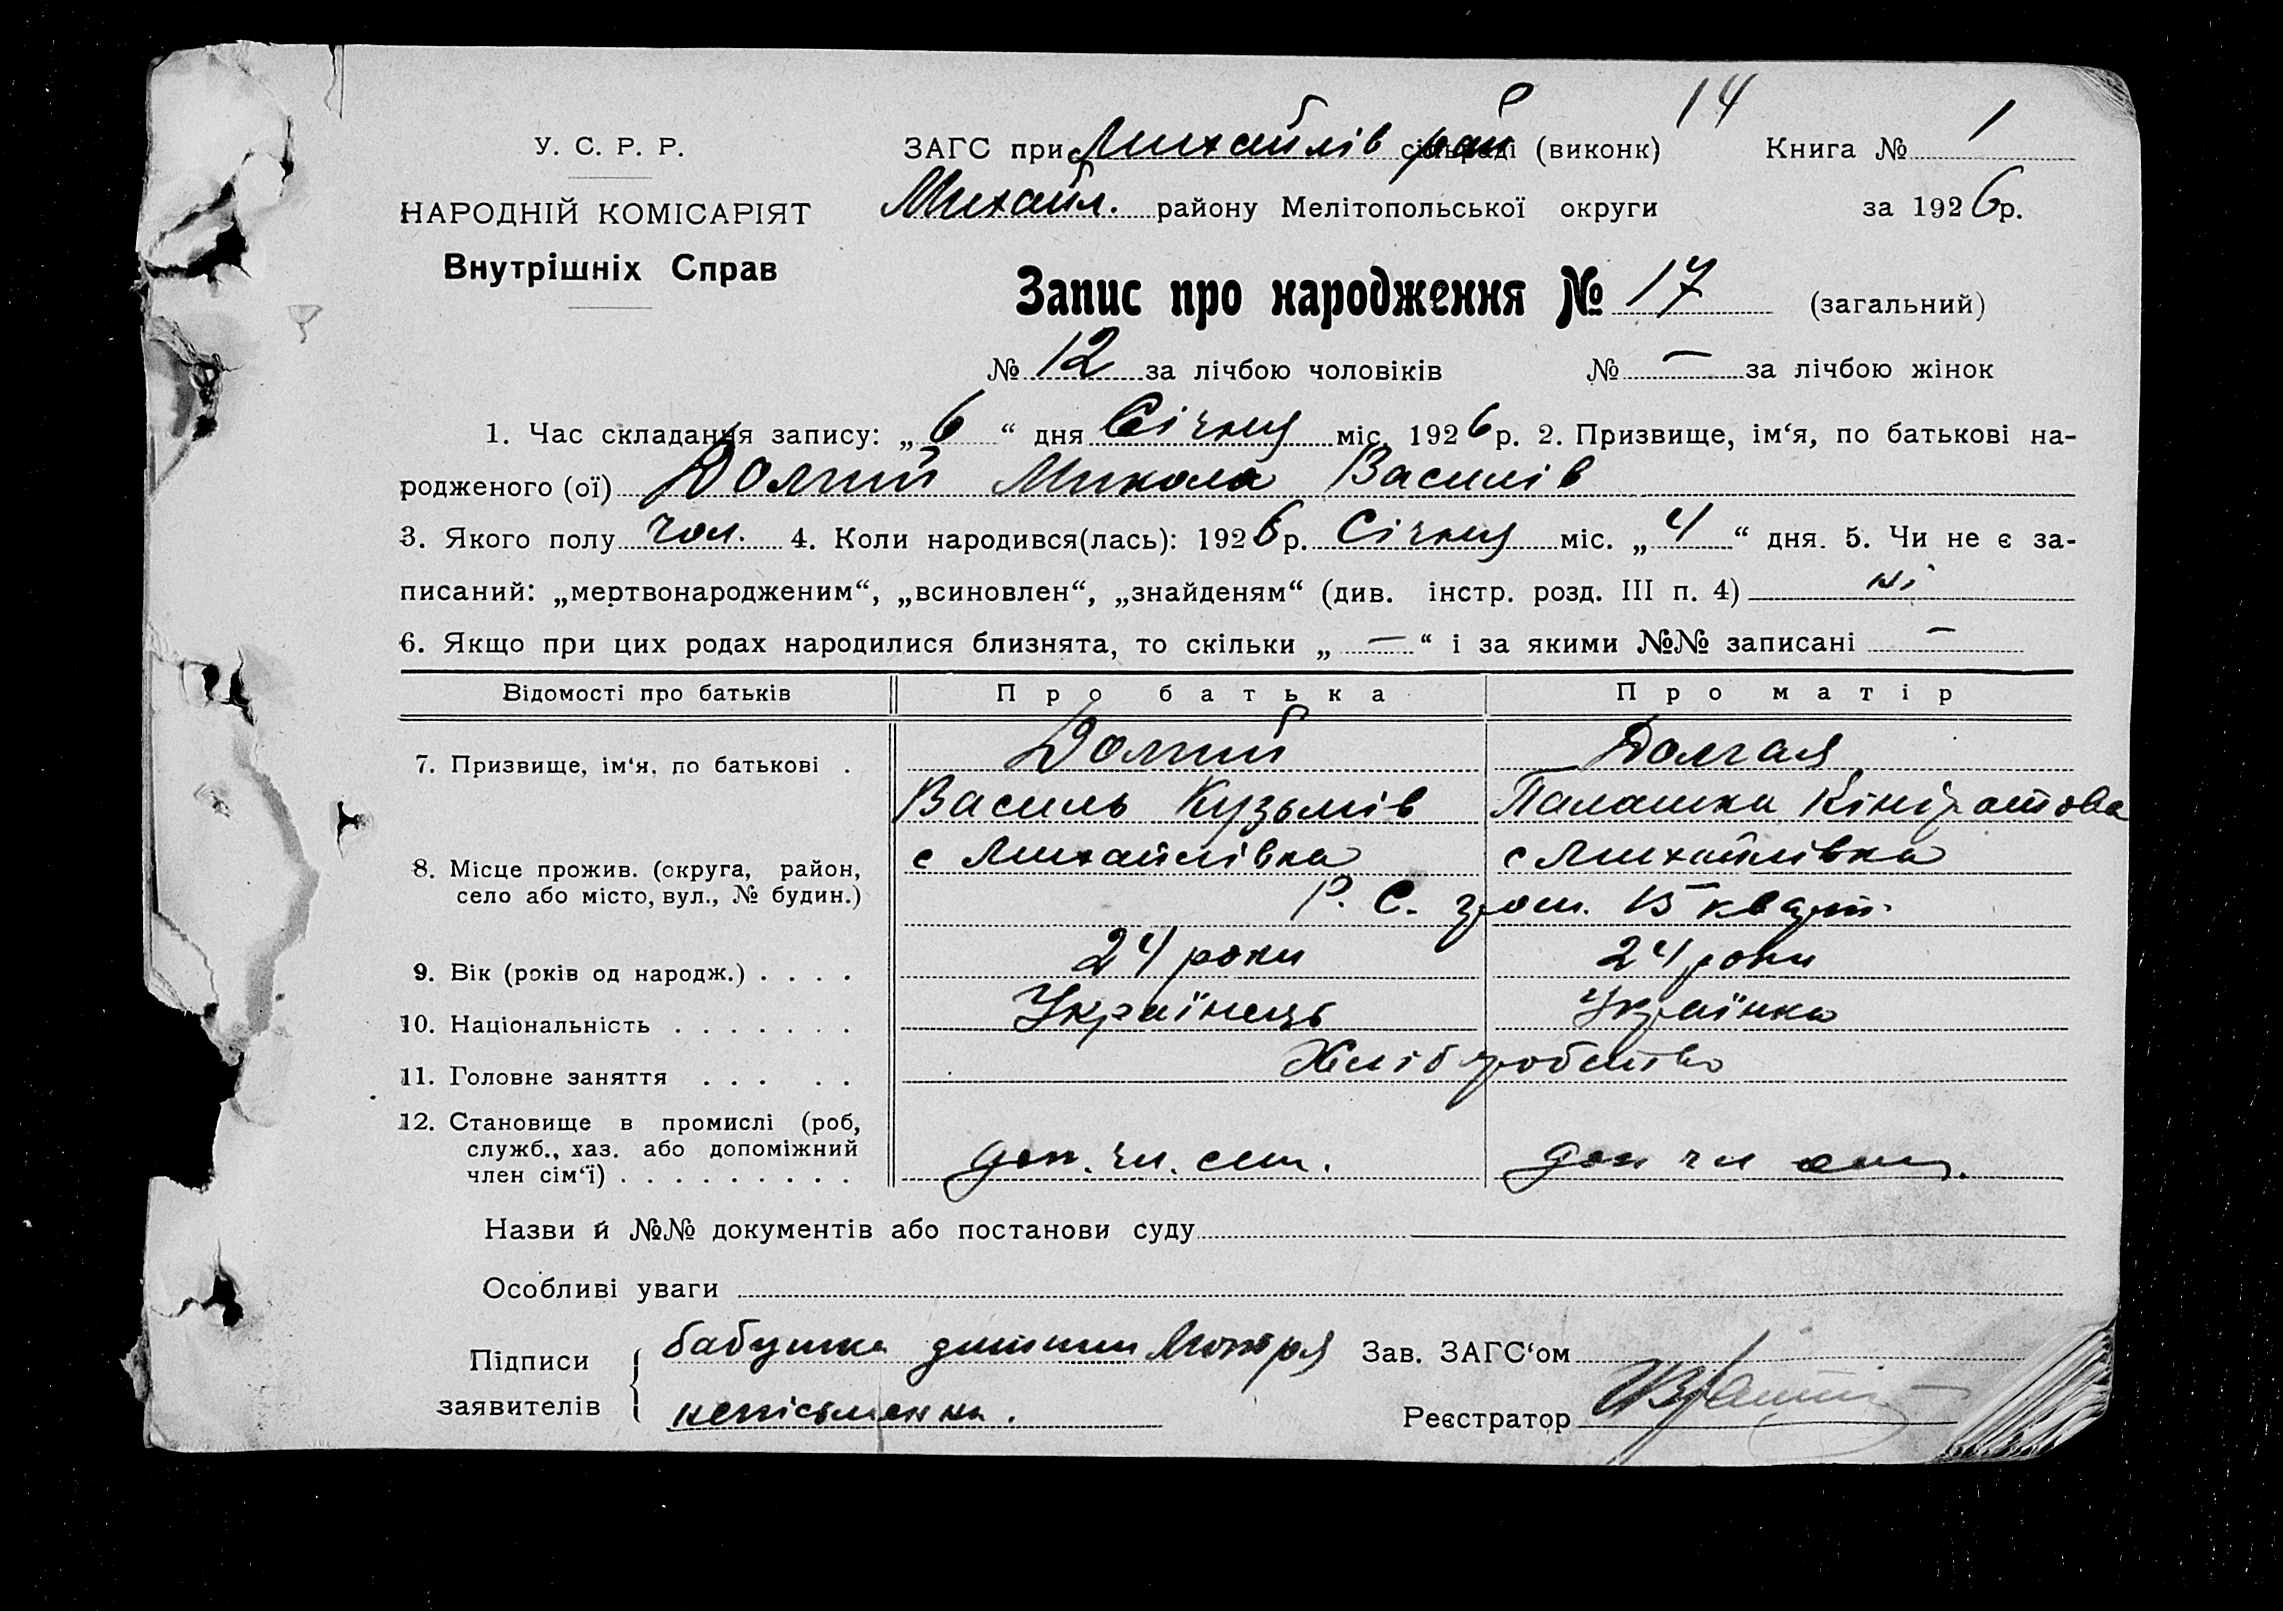 14
У. С. Р. Р.
ЗАГС при Михайлів рай (виконк) Книга № 1
НАРОДНІЙ КОМІСАРІЯТ
Михайл. району Мелітопольської округи за 1926 р.
Внутрішніх Справ
Запис про народження № 17 (загальний)
№ 12 за лічбою чоловіків № — за лічбою жінок
1. Час складання запису: „6“ дня Січня міс. 1926 р. 2. Призвище, ім‘я, по батькові на-
родженого (ої) Долгий Микола Василів
3. Якого полу чол. 4. Коли народився(лась): 1926 р. Січня міс. „4“ дня. 5. Чи не є за-
писаний: „мертвонародженим“, „всиновлен“, „знайденям“ (див. інстр. розд. III п. 4) ні
6. Якщо при цих родах народилися близнята, то скільки „—“ і за якими №№ записані —
Відомості про батьків Про батька Про матір
7. Призвище, ім‘я, по батькові . Долгий Долгая
Василь Кузьмів Палашка Кіндратова
8. Місце прожив. (округа, район, с Михайлівка с Михайлівка
село або місто, вул., № будин.) Р. С. 15 кварт.
9. Вік (років од народж.) . . . . 24 роки 24 роки
10. Національність . . . . . . . Українець Українка
11. Головне заняття . . . . . Хліборобство
12. Становище в промислі (роб,
служб., хаз. або допоміжний
член сім‘ї) . . . . . . . . . доп. чл. сем. доп чл сем.
Назви й №№ документів або постанови суду
Особливі уваги
Підписи бабушка дитини Мотря Зав. ЗАГС‘ом
заявителів непісьменна. Реєстратор